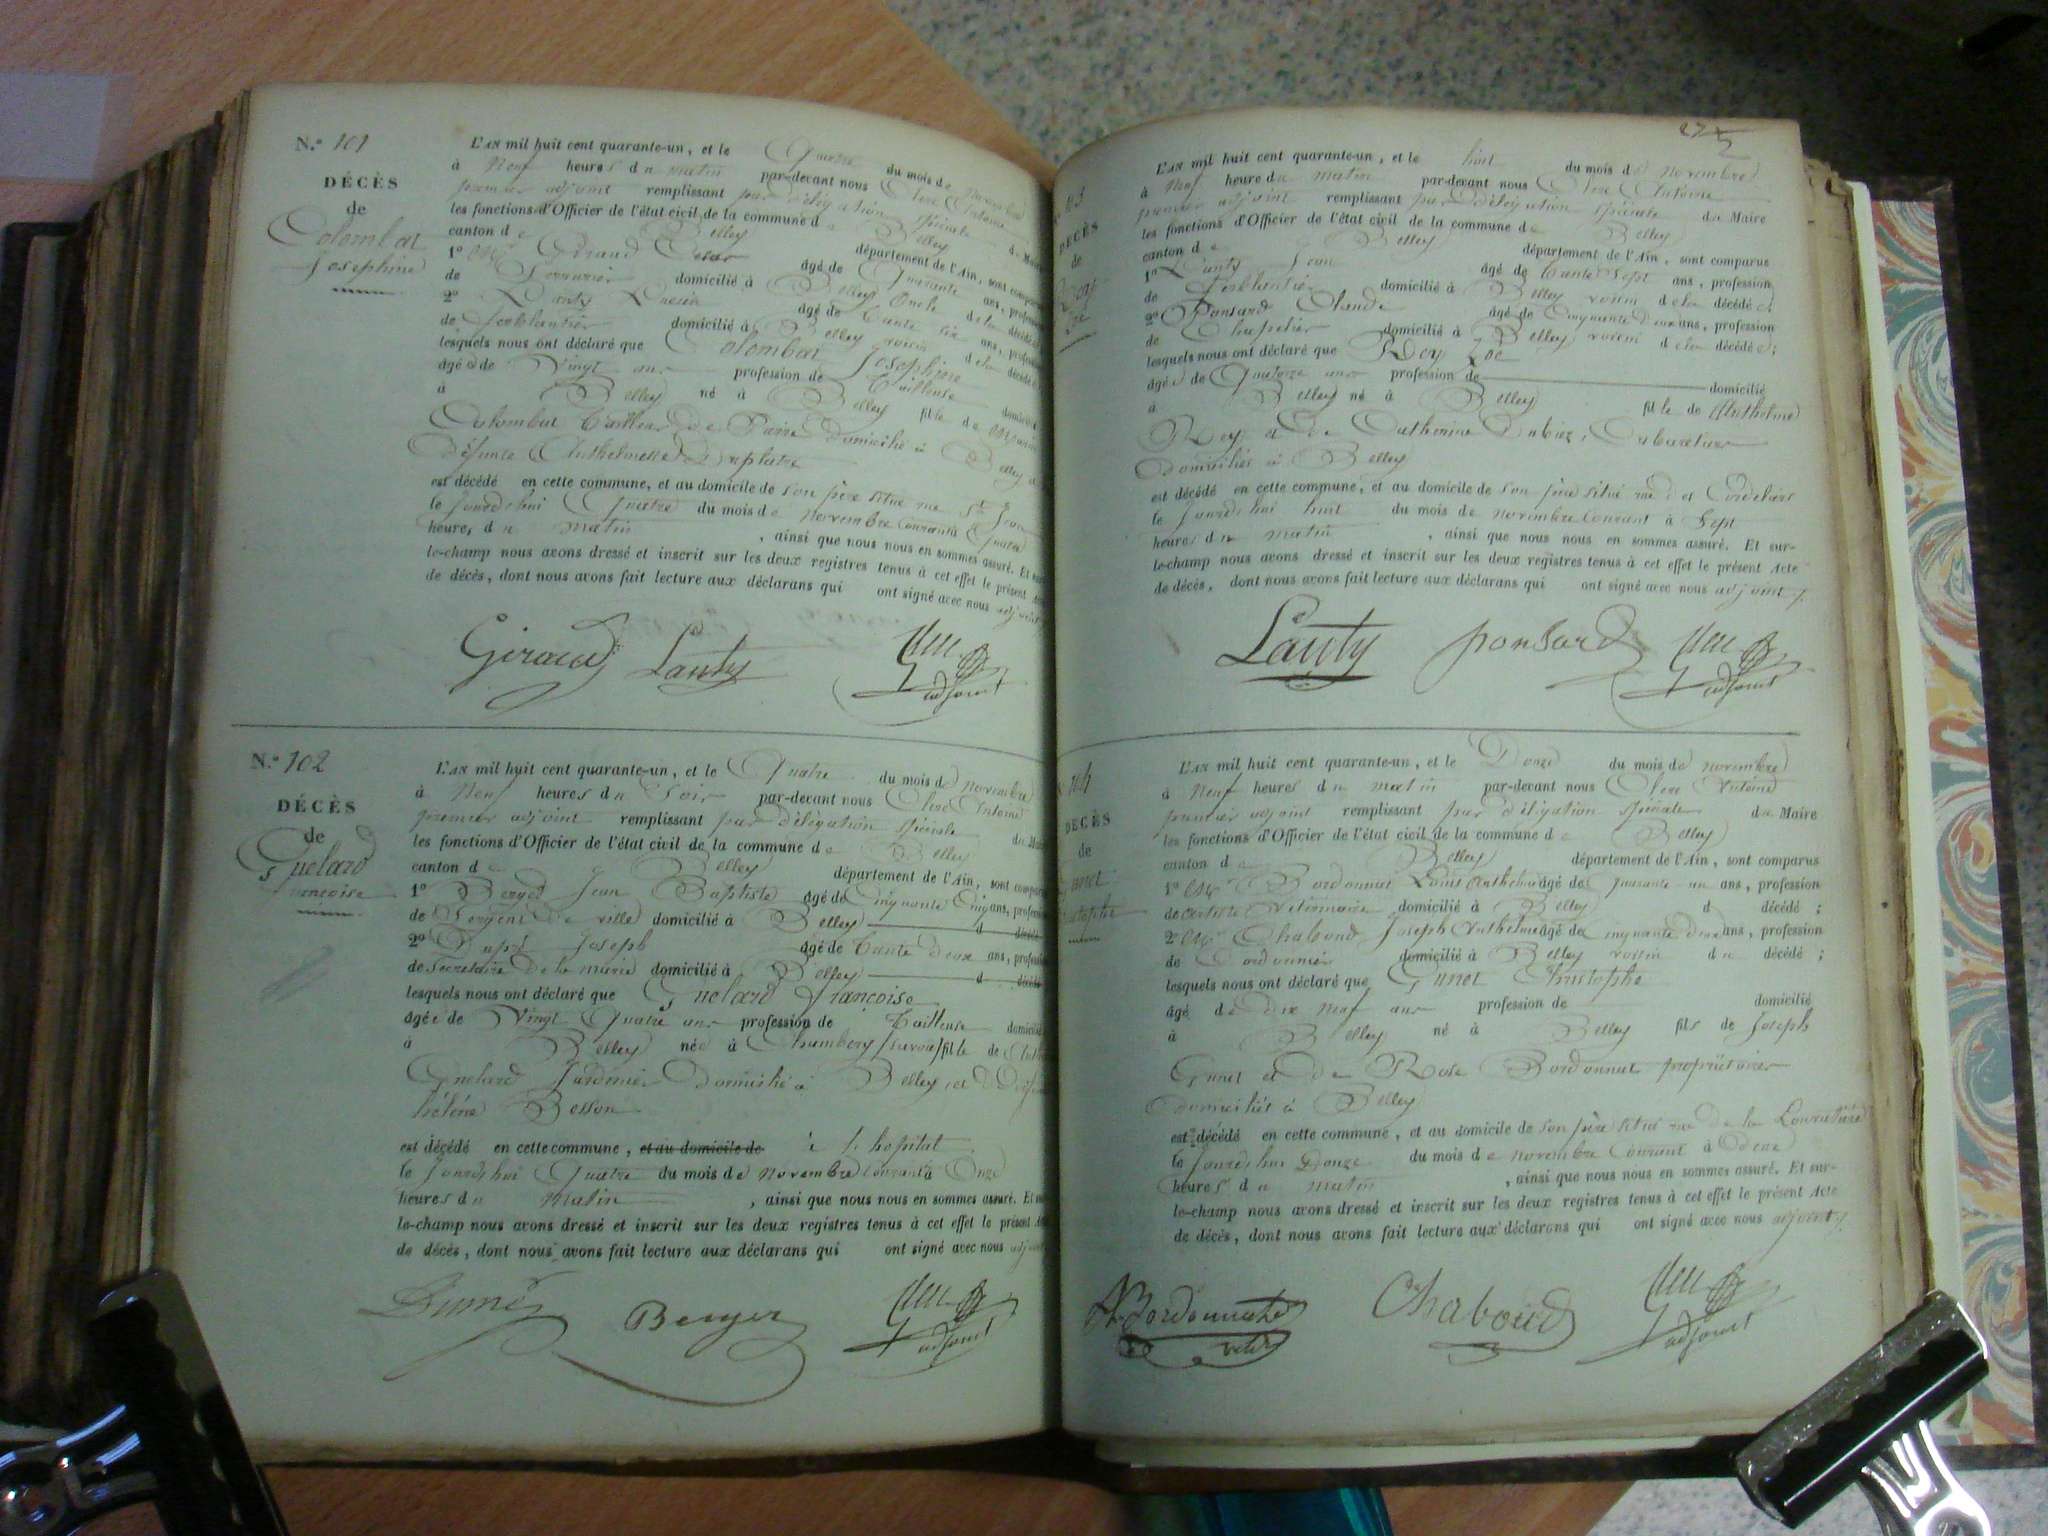 N.º 101
DÉCÈS
de
Colombat
Josephine
L'AN mil huit cent quarante-un, et le Quatre du mois de Novembre
à Neuf heures du matin par-devant nous Clerc Antoine
premier adjoint remplissant par délégation spéciale du Maire
les fonctions d'Officier de l'état civil de la commune de Belley
canton de Belley département de l'Ain, sont comparus
1º Giraud ans, profession
de Serrurier domicilié à Belley Oncle de la décédée
2º Lanty âgé de trente six ans, profession
de ferblantier domicilié à Belley voisin de la décédée
lesquels nous ont déclaré que Colombat Josephine
âgée de Vingt ans profession de Tailleuse domicilié
à Belley né à Belley fille de
Colombat Tailleur de Pierre domicilié à Belley
défunte Anthelmette Duplatre
est décédé en cette commune, et au domicile de son père situé rue St Jean
le Jourdhui Quatre du mois de novembre Courant à Quatre
heures du matin, ainsi que nous nous en sommes assuré. Et sur-
le-champ nous avons dressé et inscrit sur les deux registres tenus à cet effet le présent Acte
de décès, dont nous avons fait lecture aux déclarans qui ont signé avec nous adjoint
Giraud Lanty adjoint
N.º 102
DÉCÈS
de
Guelard
françoise
L'AN mil huit cent quarante-un, et le Quatre du mois de novembre
à Neuf heures du Soir par-devant nous Clerc Antoine
premier adjoint remplissant par délégation spéciale du Maire
les fonctions d'Officier de l'état civil de la commune de Belley
canton de Belley département de l'Ain, sont comparus
1º Berger Jean Baptiste âgé de Cinquante Cinq ans, profession
de Sergent de ville domicilié à Belley d décédé
2º Joseph âgé de trente deux ans, profession
de Secretaire de la mairie domicilié à Belley d décédé
lesquels nous ont déclaré que Guelard françoise
âgée de Vingt Quatre ans profession de Tailleuse domicilié
à Belley née à Chambery (savoie) fille de
Guelard Jardinier Domicilié à Belley, et
héléne Besson
est décédé en cette commune, et au domicile de à l'hopital
le Jourdhui Quatre du mois de novembre Courant à Onze
heures du matin, ainsi que nous nous en sommes assuré. Et sur-
le-champ nous avons dressé et inscrit sur les deux registres tenus à cet effet le présent Acte
de décès, dont nous avons fait lecture aux déclarans qui ont signé avec nous adjoint
Berger adjoint
103
DÉCÈS
de
Rey
L'AN mil huit cent quarante-un, et le huit du mois de novembre
à Neuf heure du matin par-devant nous Clerc Antoine
premier adjoint remplissant par délégation spéciale du Maire
les fonctions d'Officier de l'état civil de la commune de Belley
canton de Belley département de l'Ain, sont comparus
1º Lanty Jean âgé de trente Sept ans, profession
de ferblantier domicilié à Belley voisin de la décédée;
2º Ponsard Claude âgé de Cinquante deux ans, profession
de Chapelier domicilié à Belley voisin de la décédée;
lesquels nous ont déclaré que Rey Zoé
âgée de Quatorze ans profession de domicilié
à Belley né à Belley fille de Anthelme
Rey et de Catherine Cabaretiers
domiciliés à Belley
est décédé en cette commune, et au domicile de son père situé rue des Cordeliers
le Jourdhui huit du mois de novembre Courant à Sept
heures du matin, ainsi que nous nous en sommes assuré. Et sur-
le-champ nous avons dressé et inscrit sur les deux registres tenus à cet effet le présent Acte
de décès, dont nous avons fait lecture aux déclarans qui ont signé avec nous adjoint
Lanty ponsard adjoint
104
DÉCÈS
de
L'AN mil huit cent quarante-un, et le Douze du mois de novembre
à Neuf heures du matin par-devant nous Clerc Antoine
premier adjoint remplissant par délégation spéciale du Maire
les fonctions d'Officier de l'état civil de la commune de Belley
canton de Belley département de l'Ain, sont comparus
1º Bordonnat Louis Anthelme âgé de quarante un ans, profession
de artiste Vétérinaire domicilié à Belley d décédé;
2º Chaboud Joseph Anthelme âgé de Cinquante deux ans, profession
de Cordonnier domicilié à Belley voisin du décédé;
lesquels nous ont déclaré que Christophe
âgé de dix neuf ans profession de domicilié
à Belley né à Belley fils de Joseph
et de Rose Bordonnat propriétaires
domiciliés à Belley
est décédé en cette commune, et au domicile de son père situé rue de la
le Jourdhui Douze du mois de novembre Courant à Deux
heures du matin, ainsi que nous nous en sommes assuré. Et sur-
le-champ nous avons dressé et inscrit sur les deux registres tenus à cet effet le présent Acte
de décès, dont nous avons fait lecture aux déclarans qui ont signé avec nous adjoint
Chaboud adjoint